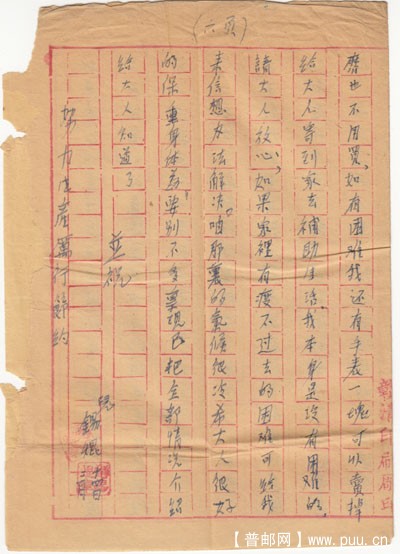 (六頁)
磨也不用買。如有困难我还有手表一塊可以賣掉
給大人寄到家去補助生活。我本身是沒有困难的。
請大人放心，如果家裡有度不过去的困难可給我
来信想办法解决。咱那裏的氣候很冷希大人很好
的保重身体為要別不多寫現已把全部情况介紹
給大人知道了
並祝
努力生産厲行節約
兒
錫
【普邮网】www.puu.cn